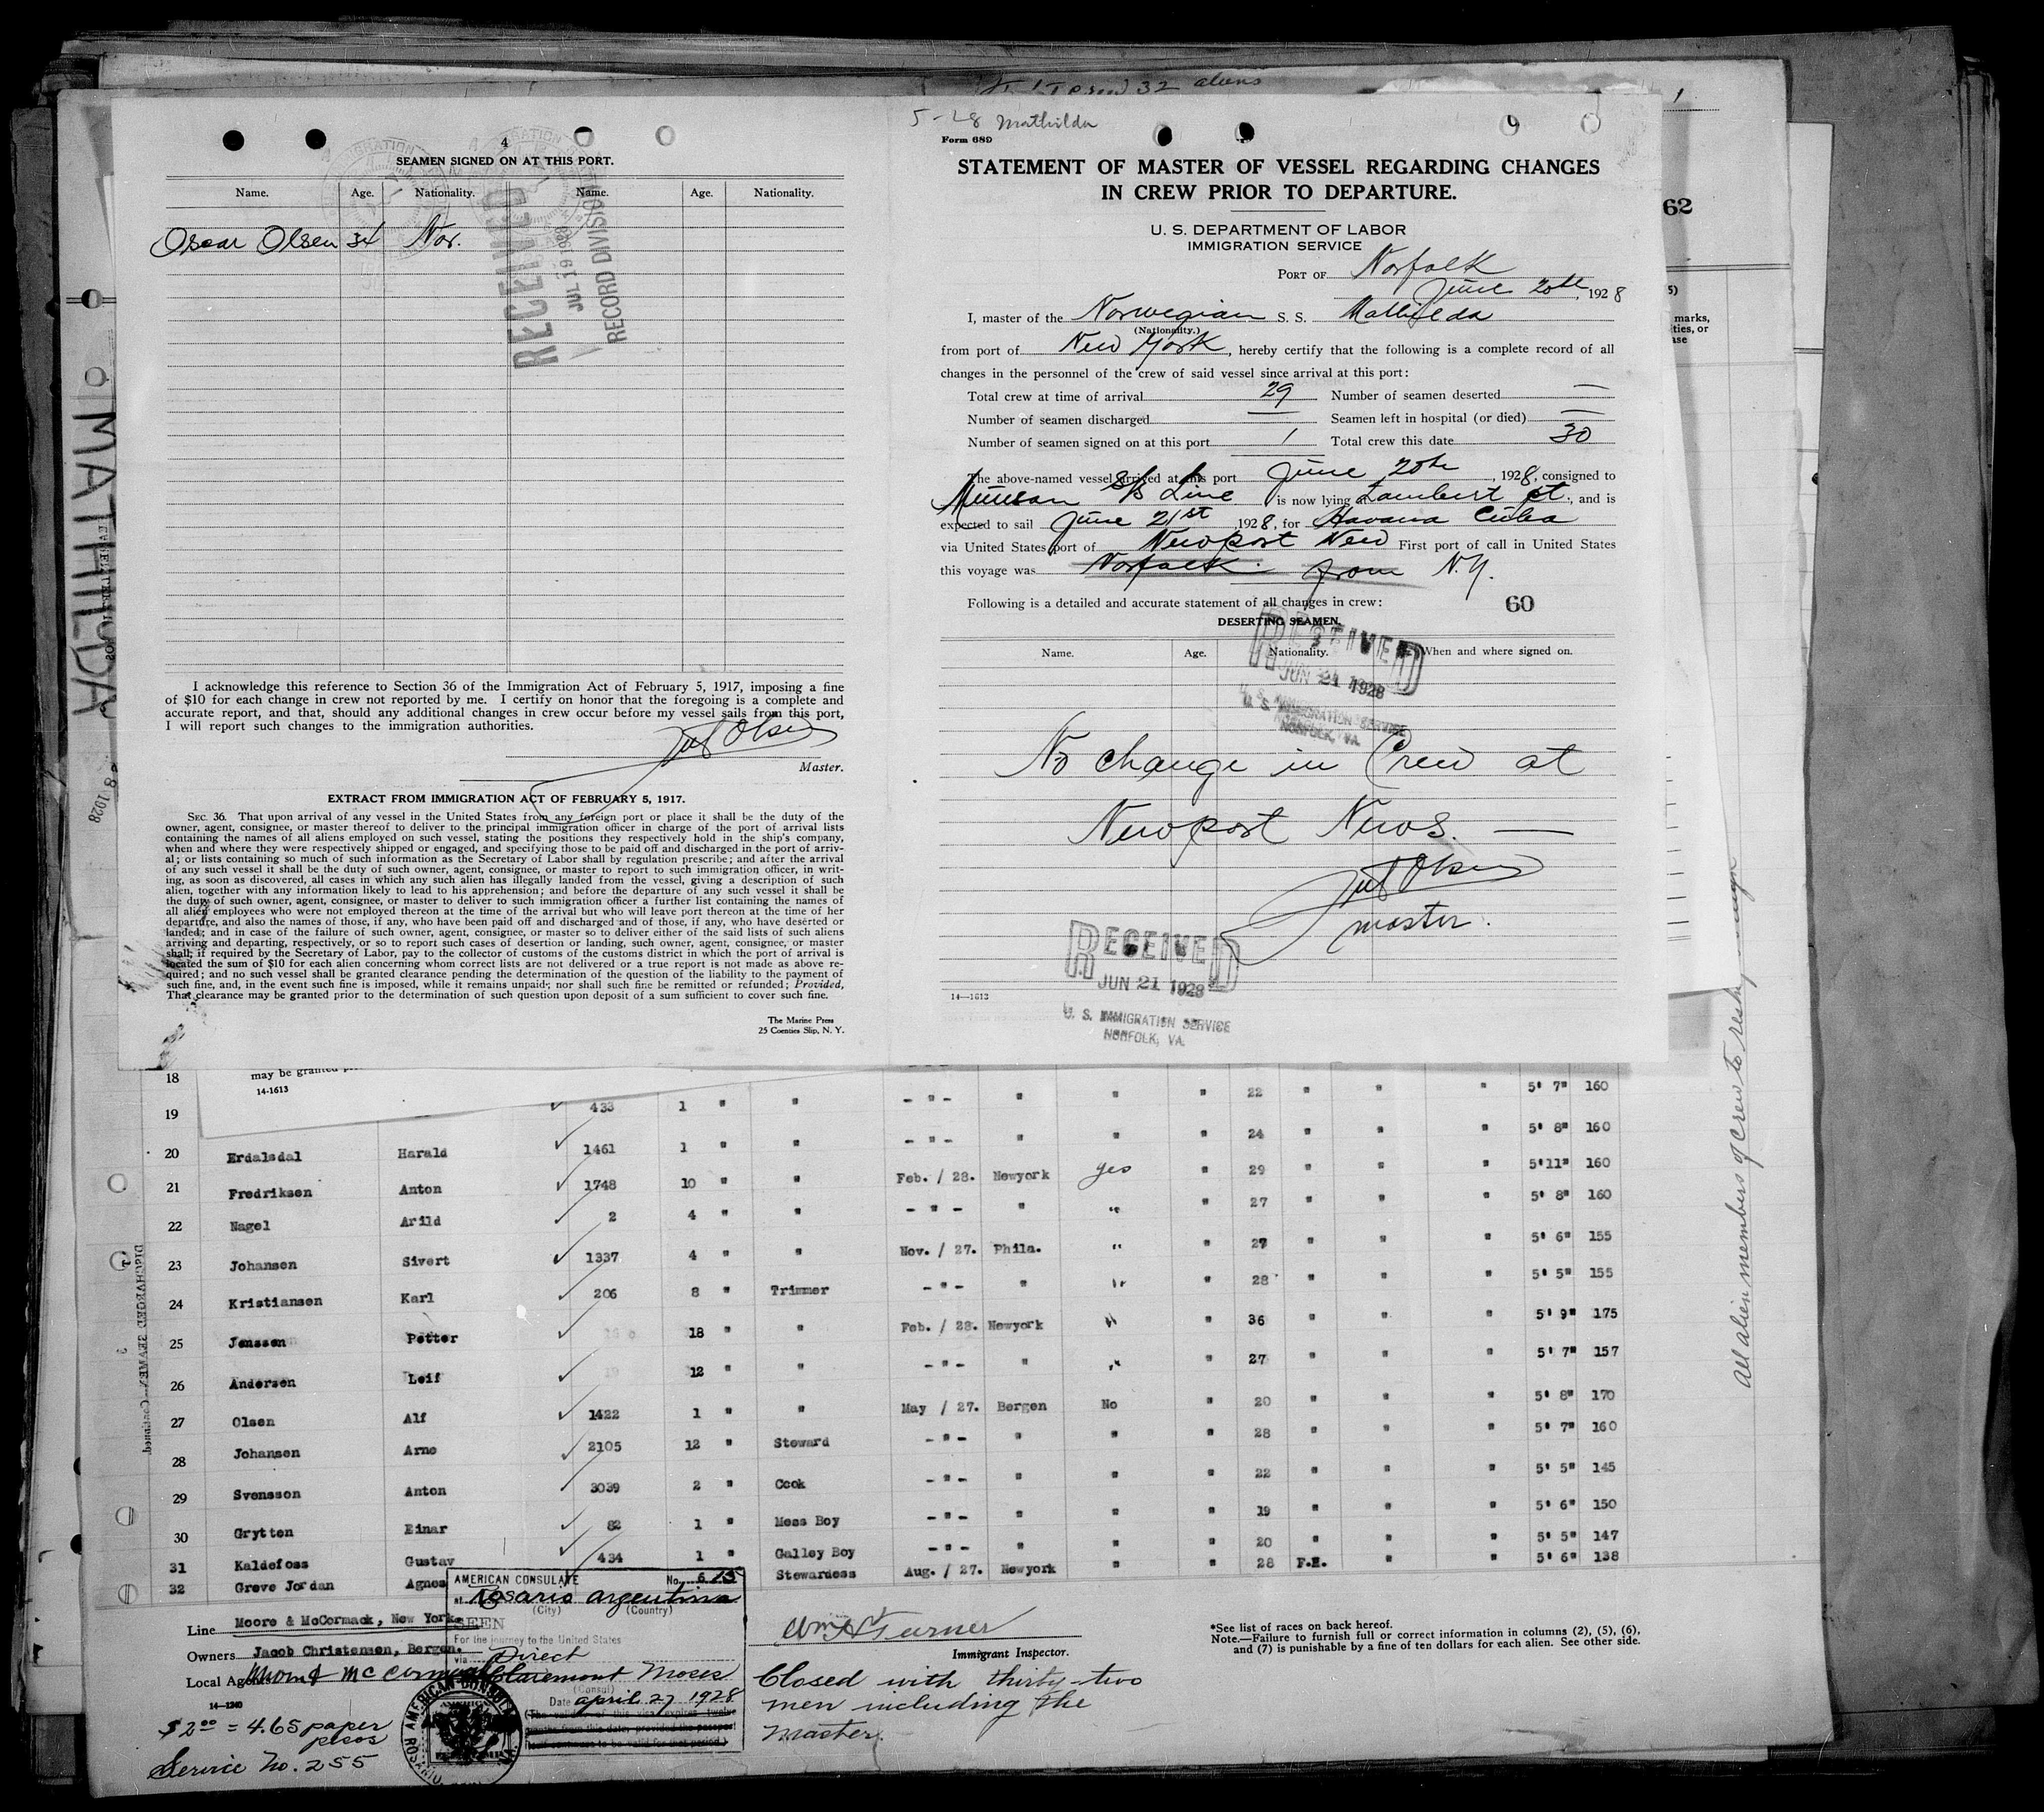 Total crew 32 aliens
4
SEAMEN SIGNED ON AT THIS PORT.
Name. Age. Nationality. Name. Age. Nationality.
Oscar Olsen 34 Nor.
RECEIVED
JUL 19 1928
RECORD DIVISION
I acknowledge this reference to Section 36 of the Immigration Act of February 5, 1917, imposing a fine
of $10 for each change in crew not reported by me. I certify on honor that the foregoing is a complete and
accurate report, and that, should any additional changes in crew occur before my vessel sails from this port,
I will report such changes to the immigration authorities.
Olsen
Master.
EXTRACT FROM IMMIGRATION ACT OF FEBRUARY 5, 1917.
SEC. 36. That upon arrival of any vessel in the United States from any foreign port or place it shall be the duty of the
owner, agent, consignee, or master thereof to deliver to the principal immigration officer in charge of the port of arrival lists
containing the names of all aliens employed on such vessel, stating the positions they respectively hold in the ship's company,
when and where they were respectively shipped or engaged, and specifying those to be paid off and discharged in the port of arriv-
al; or lists containing so much of such information as the Secretary of Labor shall by regulation prescribe; and after the arrival
of any such vessel it shall be the duty of such owner, agent, consignee, or master to report to such immigration officer, in writ-
ing, as soon as discovered, all cases in which any such alien has illegally landed from the vessel, giving a description of such
alien, together with any information likely to lead to his apprehension; and before the departure of any such vessel it shall be
the duty of such owner, agent, consignee, or master to deliver to such immigration officer a further list containing the names of
all alien employees who were not employed thereon at the time of the arrival but who will leave port thereon at the time of her
departure, and also the names of those, if any, who have been paid off and discharged and of those, if any, who have deserted or
landed; and in case of the failure of such owner, agent, consignee, or master so to deliver either of the said lists of such aliens
arriving and departing, respectively, or so to report such cases of desertion or landing, such owner, agent, consignee, or master
shall, if required by the Secretary of Labor, pay to the collector of customs of the customs district in which the port of arrival is
located the sum of $10 for each alien concerning whom correct lists are not delivered or a true report is not made as above re-
quired; and no such vessel shall be granted clearance pending the determination of the question of the liability to the payment of
such fine, and, in the event such fine is imposed, while it remains unpaid; nor shall such fine be remitted or refunded; Provided,
That clearance may be granted prior to the determination of such question upon deposit of a sum sufficient to cover such fine.
The Marine Press
25 Coenties Slip, N. Y.
5-28 Mathilda
Form 689
STATEMENT OF MASTER OF VESSEL REGARDING CHANGES
IN CREW PRIOR TO DEPARTURE.
U. S. DEPARTMENT OF LABOR
IMMIGRATION SERVICE
PORT OF Norfolk
June 20th, 1928
I, master of the Norwegian S. S. Mathilda
(Nationality.)
from port of New York, hereby certify that the following is a complete record of all
changes in the personnel of the crew of said vessel since arrival at this port:
Total crew at time of arrival 29 Number of seamen deserted —
Number of seamen discharged — Seamen left in hospital (or died) —
Number of seamen signed on at this port 1 Total crew this date 30
The above-named vessel arrived at this port June 20th, 1928, consigned to
Munson S/S Line is now lying at Lambert pt., and is
expected to sail June 21st 1928, for Havana Cuba
via United States port of Newport New First port of call in United States
this voyage was Norfolk. from N.Y.
Following is a detailed and accurate statement of all changes in crew: 60
DESERTING SEAMEN.
Name. Age. Nationality. When and where signed on.
RECEIVED
JUN 21 1928
U. S. IMMIGRATION SERVICE
NORFOLK, VA.
No change in Crew at
Newport News. —
Olsen
master.
RECEIVED
JUN 21 1928
U. S. IMMIGRATION SERVICE
NORFOLK, VA.
14—1613
62
marks,
ties, or
MATHILDA
8 1928
DISCHARGED SEAMEN—Continued
All alien members of crew to reship
may be granted
14-1613
18 " " - " - " " " 22 " " " 5' 7" 160
19 433 1 " " - " - " " " 24 " " " 5' 8" 160
20 Erdalsdal Harald 1461 1 " " Feb. / 28. Newyork yes " 29 " " " 5'11" 160
21 Fredriksen Anton 1748 10 " " - " - " " " 27 " " " 5' 8" 160
22 Nagel Arild 2 4 " " Nov. / 27. Phila. " " 27 " " " 5' 6" 155
23 Johansen Sivert 1337 4 " " - " - " " " 28 " " " 5' 5" 155
24 Kristiansen Karl 206 8 " Trimmer Feb. / 28. Newyork " " 36 " " " 5' 9" 175
25 Jenssen Petter 18 " " - " - " " " 27 " " " 5' 7" 157
26 Andersen Leif 12 " " May / 27. Bergen No " 20 " " " 5' 8" 170
27 Olsen Alf 1422 1 " " - " - " " " 28 " " " 5' 7" 160
28 Johansen Arne 2105 12 " Steward - " - " " " 22 " " " 5' 5" 145
29 Svensson Anton 3039 2 " Cook - " - " " " 19 " " " 5' 6" 150
30 Grytten Einar 82 1 " Mess Boy - " - " " " 20 " " " 5' 5" 147
31 Kaldefoss Gustav 434 1 " Galley Boy
32 Greve Jordan Agnes Stewardess Aug. / 27. Newyork " " 28 F.E. " " 5' 6" 138
Line Moore & McCormack, New York.
Owners Jacob Christensen, Bergen.
Local Agents Moore & McCormack
14—1240
$2.00 = 4.65 paper
pesos
Service No. 255
AMERICAN CONSULATE No. 615
at Rosario Argentina
(City) (Country)
SEEN
For the journey to the United States
via Direct
Claremont Moses
(Consul)
Date april 27 1928
(The validity of this visa expires twelve
months from this date, provided the passport
itself continues to be valid for that period.)
AMERICAN CONSUL
ROSARIO
Wm A Turner
Immigrant Inspector.
Closed with thirty-two
men including the
Master.
*See list of races on back hereof.
Note.—Failure to furnish full or correct information in columns (2), (5), (6),
and (7) is punishable by a fine of ten dollars for each alien. See other side.